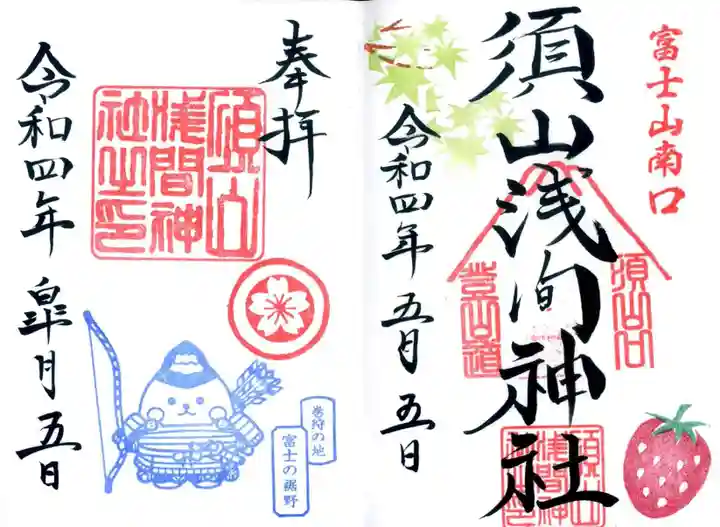 富士山南口
須山浅间神社
須山口
登山道
須山
浅間神
社之印
令和四年五月五日
奉拝
須山
浅間神
社之印
巻狩の地
富士の裾野
令和四年皐月五日